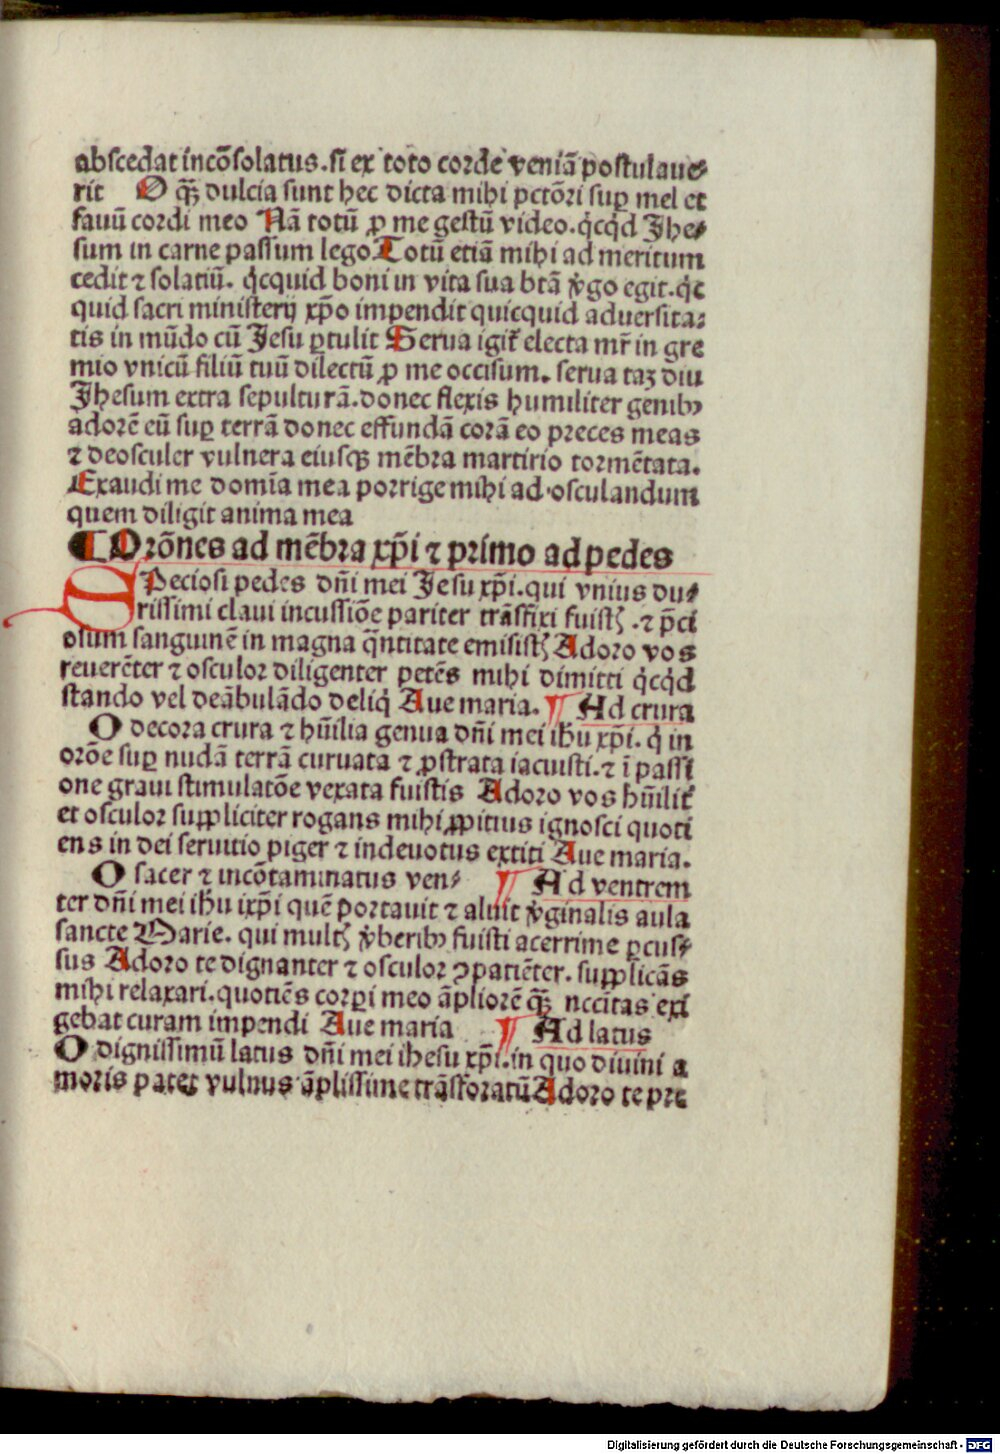 abscedat incõsolatus. si ex toto corde veniã postulaue⸗
rit O qȝ̃ dulcia sunt hec dicta mihi pctõri suꝑ mel et
fauũ cordi meo Nã totũ ꝓ me gestũ video. qͥcqͥd Jhe⸗
sum in carne passum lego Totũ etiã mihi ad meritum
cedit ⁊ solatiũ. qͥcquid boni in vita sua btã ꝟgo egit. qͥc
quid sacri ministerij xp̃o impendit quicquid aduersita⸗
tis in mũdo cũ Jesu ꝑtulit Serua igit᷑ electa mr̃ in gre
mio vnicũ filiũ tuũ dilectũ ꝓ me occisum. serua taȝ diu
Jhesum extra sepulturã. donec flexis humiliter genibꝰ
adorẽ eũ suꝑ terrã donec effundã corã eo preces meas
⁊ deosculer vulnera eiusqꝫ mẽbra martirio tormẽtata.
Exaudi me domĩa mea porrige mihi ad osculandum
quem diligit anima mea
¶ Orõnes ad mẽbra xp̃i ⁊ primo ad pedes
SPeciosi pedes dñi mei Jesu xp̃i. qui vnius du⸗
rissimi claui incussiõe pariter trãsfixi fuistꝭ. ⁊ p̃ci
osum sanguinẽ in magna q̃ntitate emisistꝭ Adoro vos
reuerẽter ⁊ osculor diligenter petẽs mihi dimitti qͥcqͥd
stando vel deãbulãdo deliqͥ Aue maria. ¶ Ad crura
O decora crura ⁊ hũilia genua dñi mei ihũ xp̃i. qͥ in
orõe suꝑ nudã terrã curuata ⁊ ꝓstrata iacuisti. ⁊ ĩ passi
one graui stimulatõe vexata fuistis Adoro vos hũilit᷑
et osculor suppliciter rogans mihi ꝓpitius ignosci quoti
ens in dei seruitio piger ⁊ indeuotus extiti Aue maria.
O sacer ⁊ incõtaminatus ven⸗ ¶ Ad ventrem
ter dñi mei ihũ ixp̃i quẽ portauit ⁊ aluit ꝟginalis aula
sancte Marie. qui multꝭ ꝟberibꝰ fuisti acerrime ꝑcus⸗
sus Adoro te dignanter ⁊ osculor ꝯpatiẽter. supplicãs
mihi relaxari. quotiẽs corꝑi meo ãpliorẽ qȝ̃ nccĩtas exi
gebat curam impendi Aue maria ¶ Ad latus
O dignissimũ latus dñi mei ihesu xp̃i. in quo diuini a
moris patet vulnus ãplissime trãsforatũ Adoro te pre
Digitalisierung gefördert durch die Deutsche Forschungsgemeinschaft - DFG